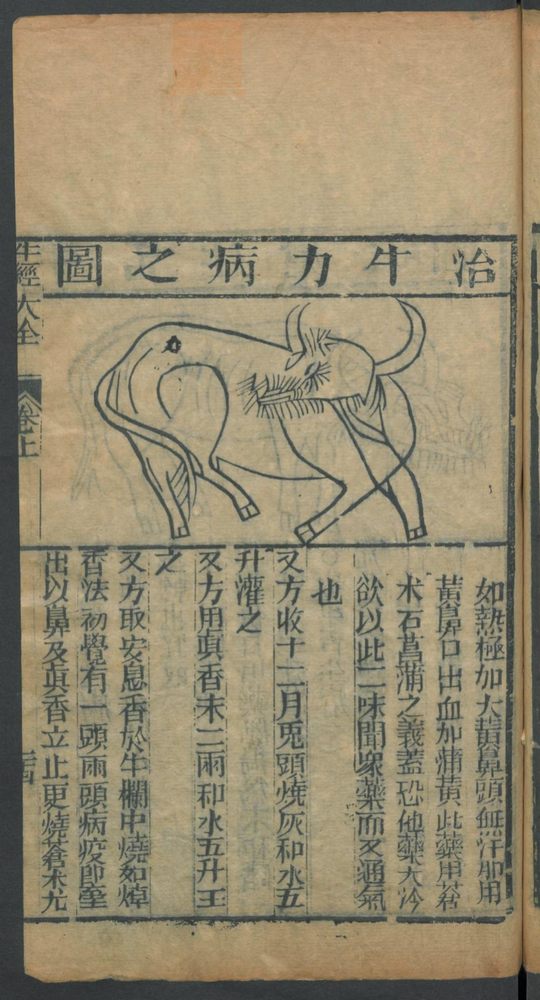 治牛力病之圖
如熱極加大黃鼻頭無汗加用
黃鼻口出血加蒲黃此藥用蒼
木石菖蒲之義蓋恐他藥大冷
欲以此二味開衆藥而又通氣
也
又方收十二月兎頭燒灰和水五
升灌之
又方用眞香末二兩和水五升王
之
又方取安息香於牛欄中燒如焯
香法初覺有一頭兩頭病疫即牽
出以鼻及眞香立止更燒蒼术尤
牛經大全
卷上